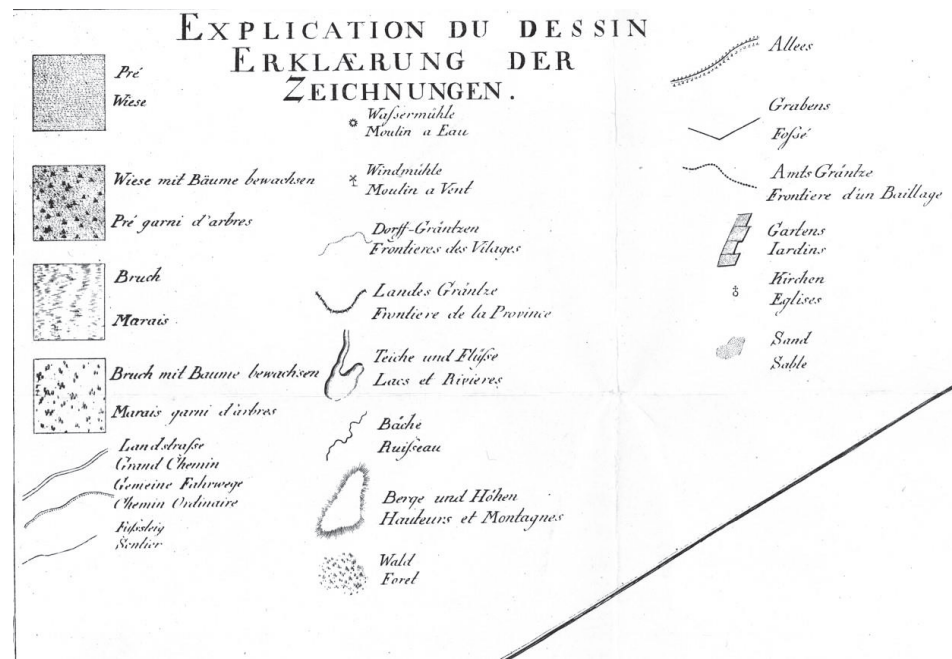 EXPLICATION DU DESSIN
ERKLÆRUNG DER
ZEICHNUNGEN.
Pré
Wiese
Wiese mit Bäume bewachsen
Pré garni d'arbres
Bruch
Marais
Bruch mit Baume bewachsen
Marais garni d'arbres
Landstraſse
Grand Chemin
Gemeine Fahrwege
Chemin Ordinaire
Fußsteig
Sentier
Waſsermühle
Moulin a Eau
Windmühle
Moulin a Vent
Dorff-Gräntzen
Frontieres des Vilages
Landes Gräntze
Frontiere de la Province
Teiche und Flüſse
Lacs et Rivieres
Bäche
Ruiſseau
Berge und Höhen
Hauteurs et Montagnes
Wald
Foret
Allees
Grabens
Foſsé
Amts Gräntze
Frontiere d'un Baillage
Gartens
Iardins
Kirchen
Eglises
Sand
Sable